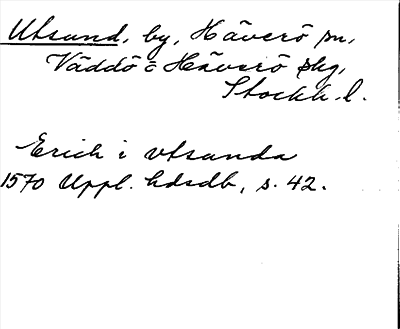 Utsund, by, Häverö sn,
Väddö o Häverö skg,
Stockh. l.
Erich i vtsanda
1570 Uppl. hdsdb, s. 42.